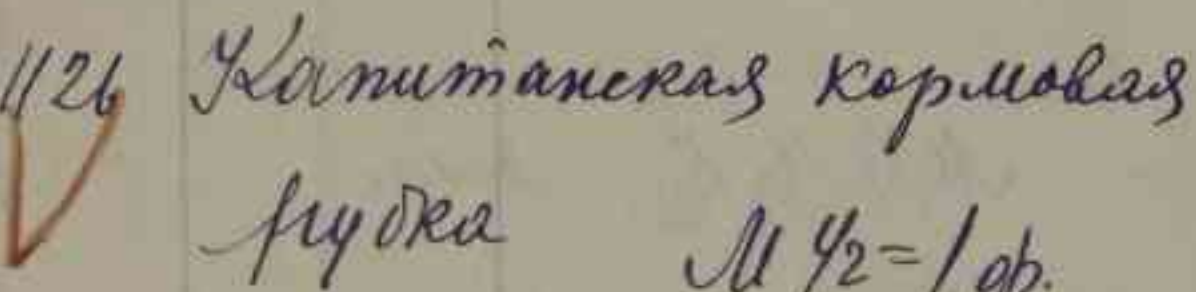 1126 Капитанская кормовая
рубка М 1/2=1 ф.